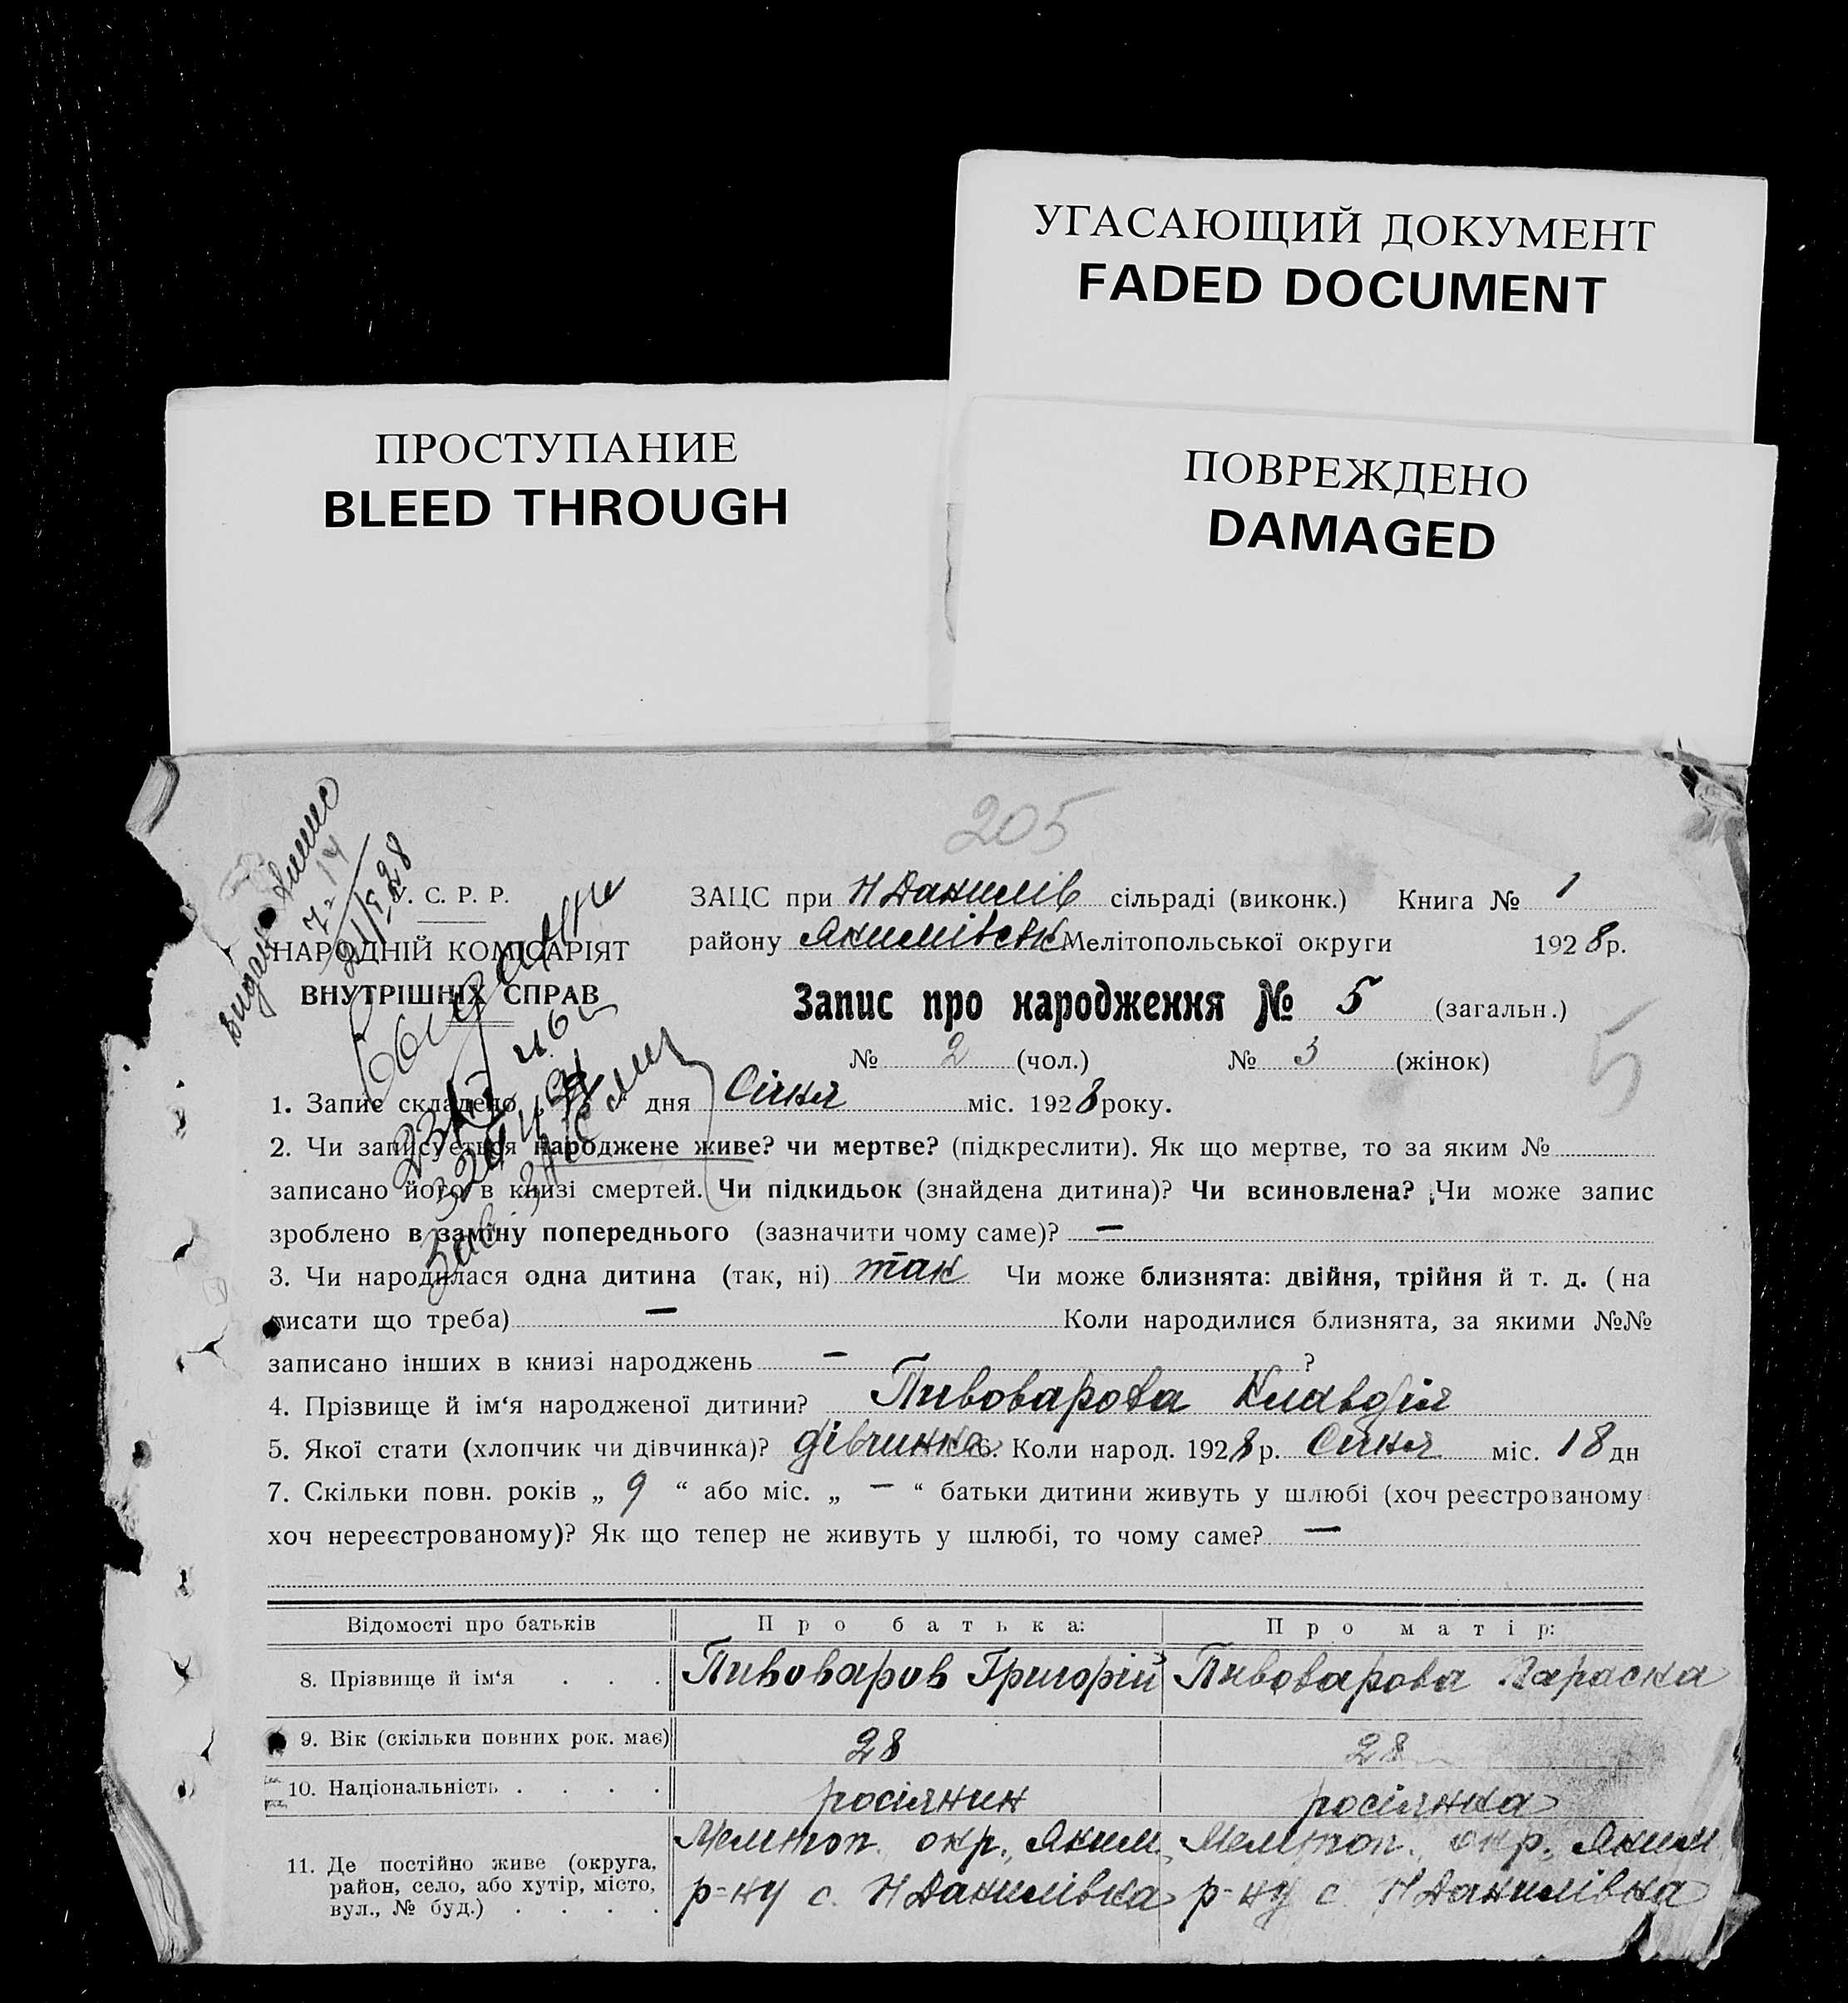 УГАСАЮЩИЙ ДОКУМЕНТ
FADED DOCUMENT
ПРОСТУПАНИЕ
BLEED THROUGH
ПОВРЕЖДЕНО
DAMAGED
205
С. Р. Р.
НАРОДНІЙ КОМІСАРІЯТ
ВНУТРІШНІХ СПРАВ
ЗАЦС при Н Данилів сільраді (виконк.) Книга № 1
району Якимівськ Мелітопольської округи 1928 р.
Запис про народження № 5 (загальн.)
№ 2 (чол.) № 3 (жінок)
5
1. Запис складено дня Січня міс. 1928 року.
2. Чи записується народжене живе? чи мертве? (підкреслити). Як що мертве, то за яким №
записано його в книзі смертей. Чи підкидьок (знайдена дитина)? Чи всиновлена? Чи може запис
зроблено в заміну попереднього (зазначити чому саме)? —
3. Чи народилася одна дитина (так, ні) так Чи може близнята: двійня, трійня й т. д. (на
писати що треба) — Коли народилися близнята, за якими №№
записано інших в книзі народжень — ?
4. Прізвище й ім'я народженої дитини? Пивоварова Клавдія
5. Якої стати (хлопчик чи дівчинка)? дівчинка 6. Коли народ. 1928 р. Січня міс. 18 дн
7. Скільки повн. років „ 9 “ або міс. „ — “ батьки дитини живуть у шлюбі (хоч реєстрованому
хоч нереєстрованому)? Як що тепер не живуть у шлюбі, то чому саме? —
Відомості про батьків Про батька: Про матір:
8. Прізвище й ім'я . . . Пивоваров Григорій Пивоварова Параска
9. Вік (скільки повних рок. має) 28 28
10. Національність . . . . росіянин росіянка
11. Де постійно живе (округа, район, село, або хутір, місто, вул., № буд.) . . . .
Мелітоп. окр., Яким. р-ну с. Н Данилівка
Мелітоп. окр., Яким р-ну с. Н Данилівка